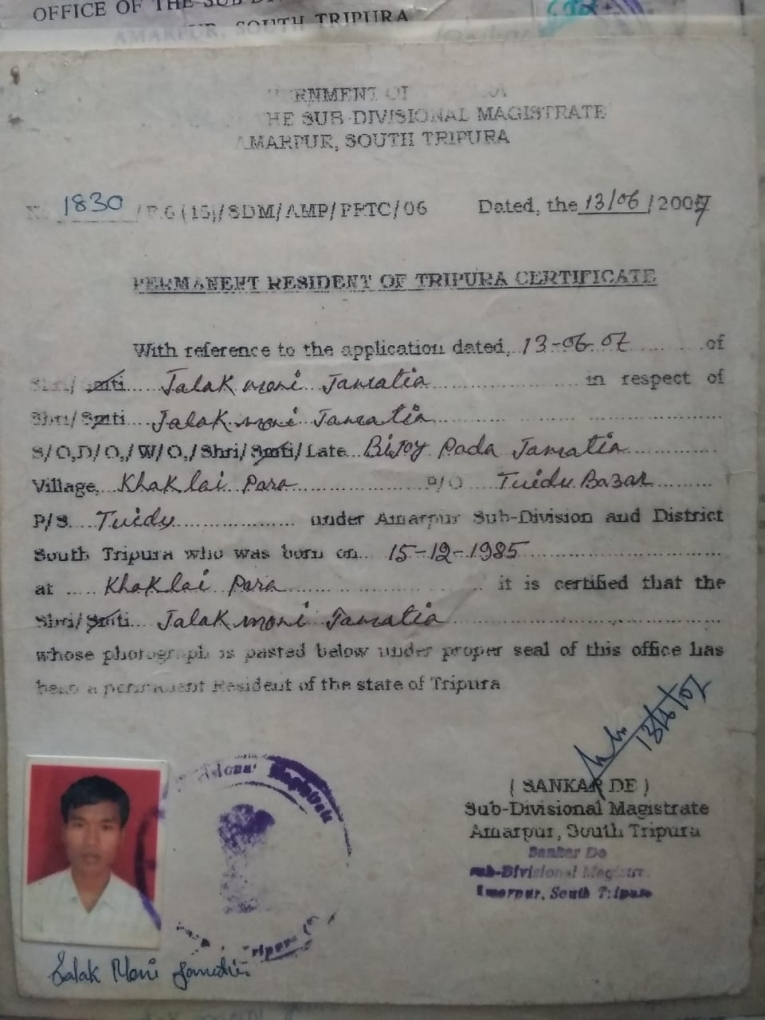 OFFICE OF THE SUB
AMARPUR, SOUTH TRIPURA
ERNMENT OF
THE SUB-DIVISIONAL MAGISTRATE
AMARPUR, SOUTH TRIPURA
1830 /F.6(15)/SDM/AMP/PRTC/06 Dated, the 13/06/2007
PERMANENT RESIDENT OF TRIPURA CERTIFICATE
With reference to the application dated, 13-06-07 of
Shri/Smti Jalak moni Jamatia in respect of
Shri/Smti Jalak moni Jamatia
S/O,D/O,/W/O,/Shri/Smti/Late Bijoy Pada Jamatia
Village, Khaklai Para P/O Tuidu Bazar
P/S. Tuidu under Amarpur Sub-Division and District
South Tripura who was born on 15-12-1985
at Khaklai Para it is certified that the
Shri/Smti Jalak moni Jamatia
whose photograph is pasted below under proper seal of this office has
been a permanent Resident of the state of Tripura
13/6/07
( SANKAR DE )
Sub-Divisional Magistrate
Amarpur, South Tripura
Sankar De
Sub-Divisional Magistrate
Amarpur, South Tripura
Divisional Magistrate
Tripura
Jalak Moni Jamatia